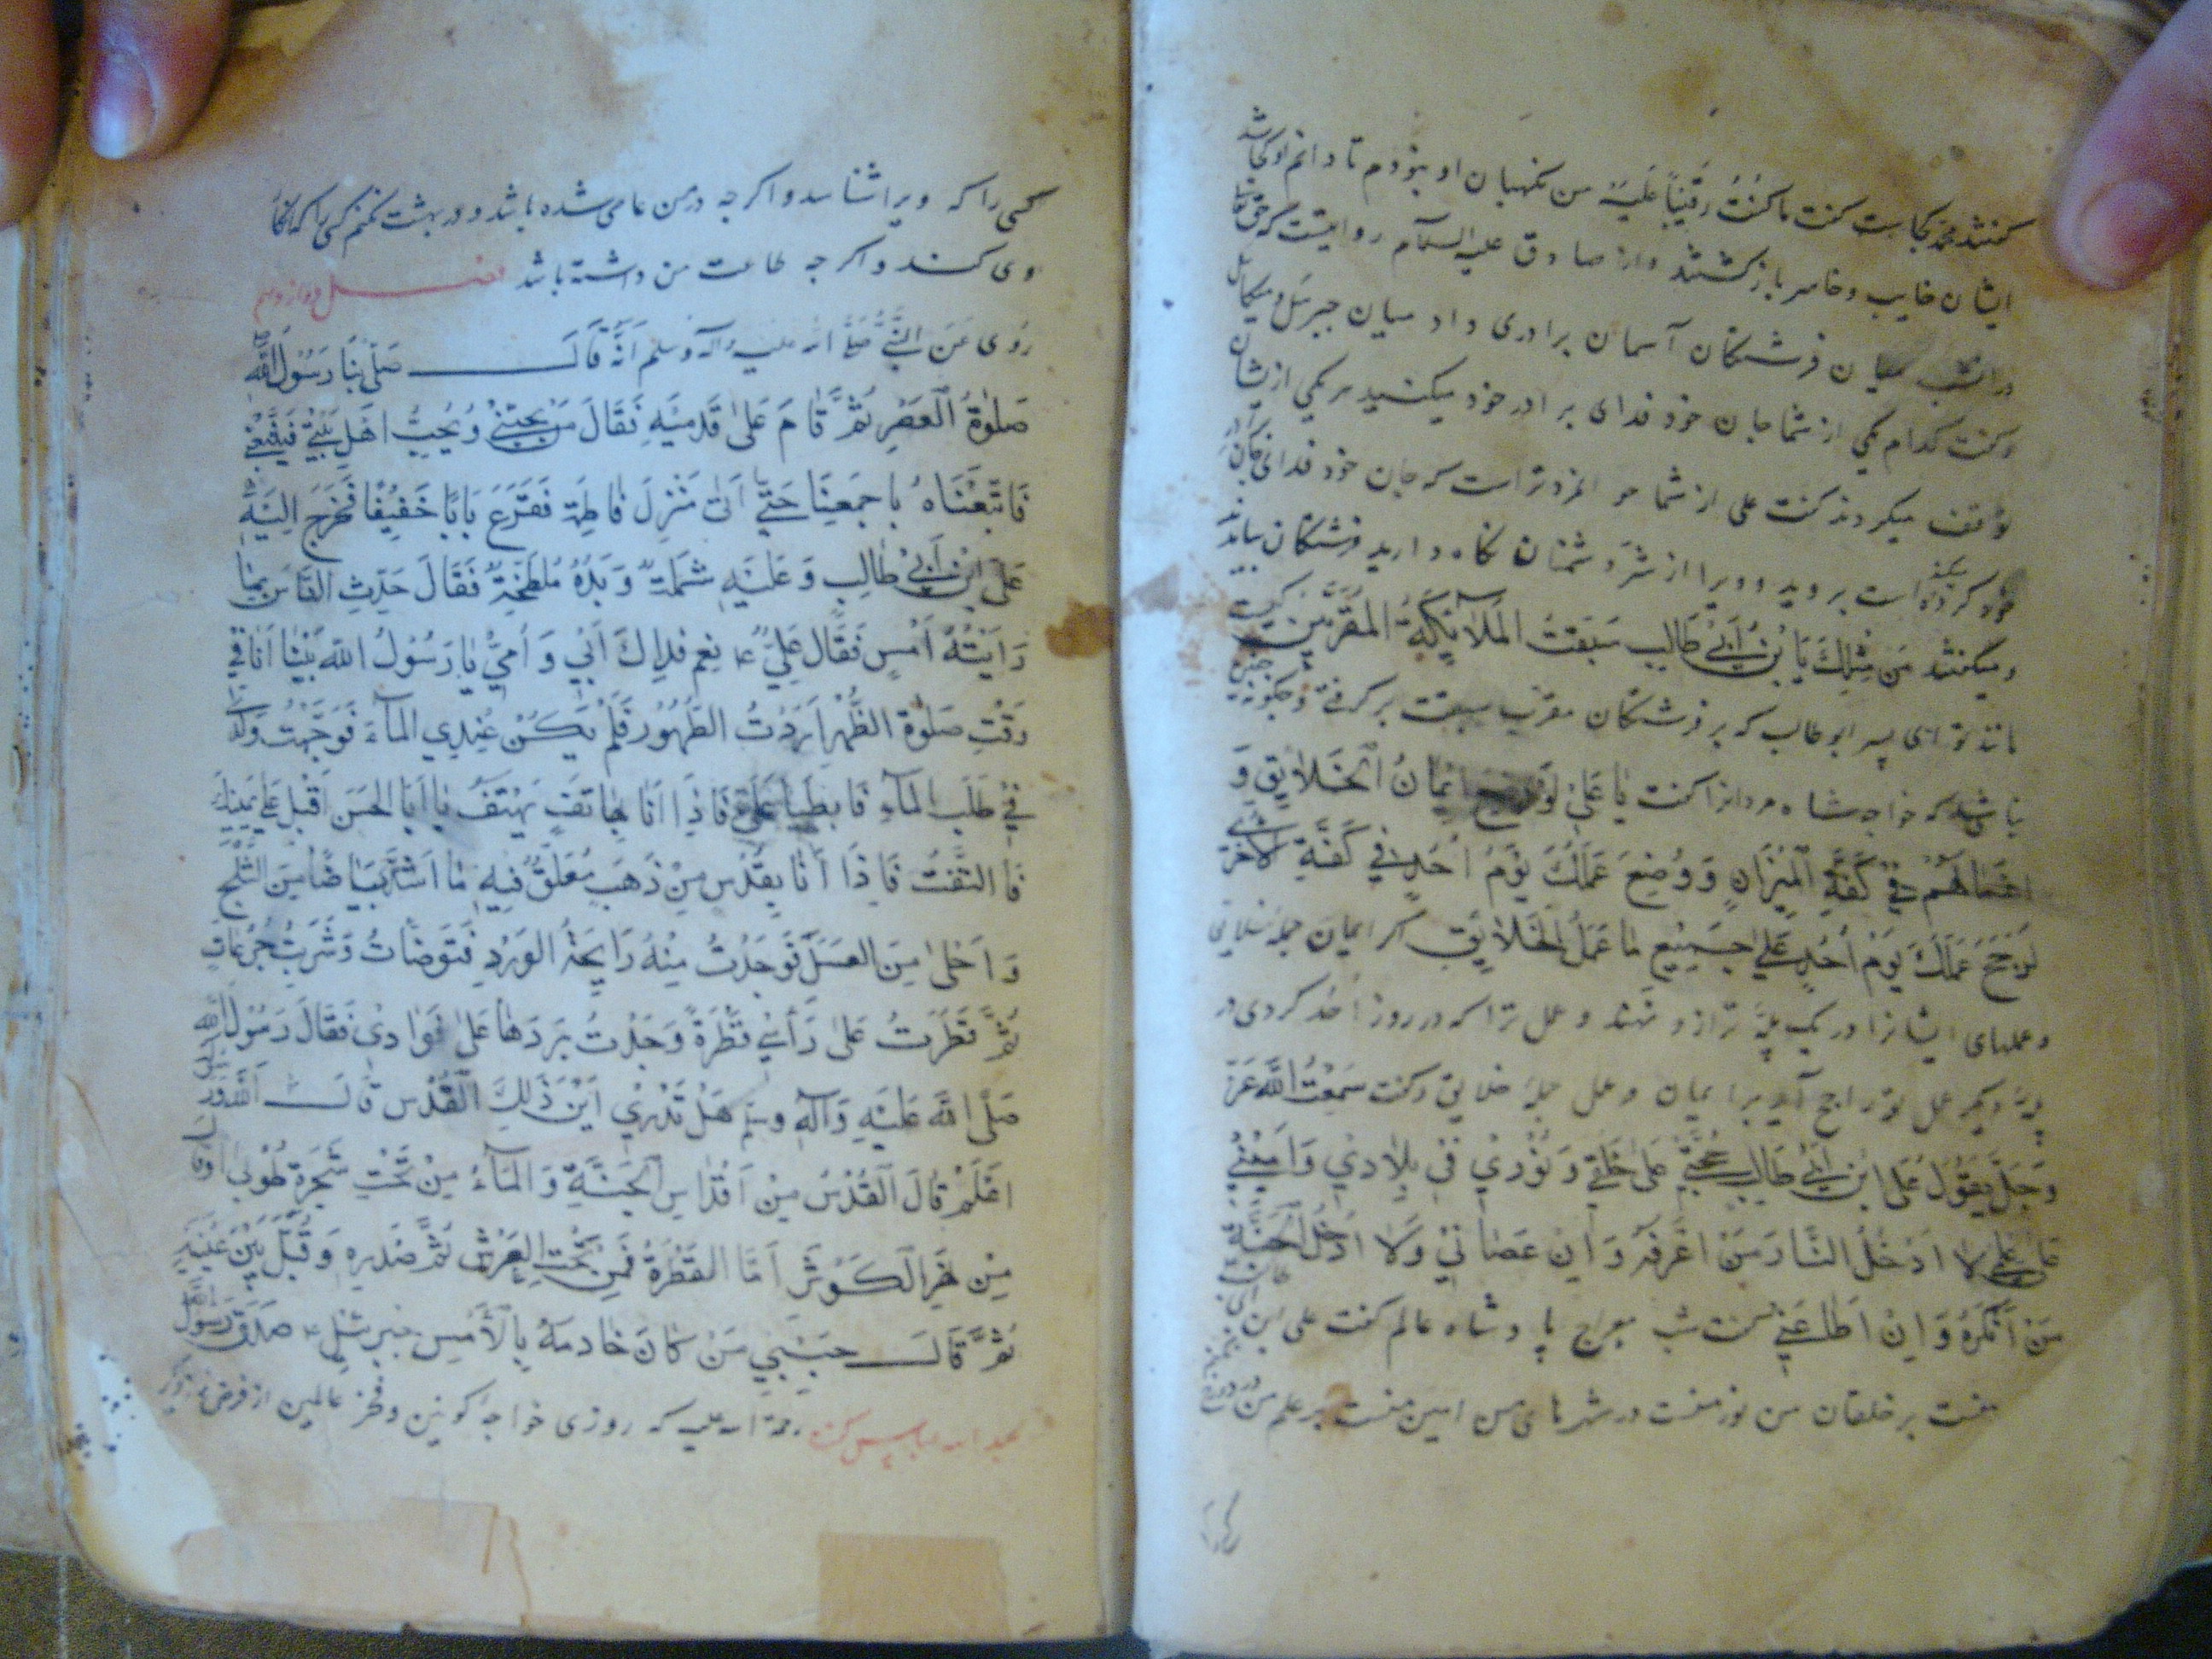 گفتند محمد کجاست گفت ما کُنْتُ رَقیباً عَلَیْهِ من نگهبان او نبودم تا دانم او کجا شد
ایشان خایب و خاسر بازگشتند و از صادق علیه السلام روایتست که حق تعالی
در آن شب میان فرشتگان آسمان برادری داد میان جبرئیل و میکائیل
و گفت کدام یکی از شما جان خود فدای برادر خود میکنید هر یکی از یشان
توقف میکردند گفت علی از شما جوانمردتر است که جان خود فدای
خود کرده است بروید و ویرا از شر دشمنان نگاه دارید فرشتگان بیامدند
و میگفتند مَن مِثلِكَ یَا بْنَ أَبي طَالِبٍ سَبَقْتَ المَلآئِکَةَ المُقَرَّبینَ کیست
مانند تو ای پسر ابو طالب که بر فرشتگان مقرب سبقت برگرفتی و چگونه چنین
نباشد که خواجه شاه مردانرا گفت یا عَلِيُّ لَوْ وُضِعَ اِیمانُ الخَلایِقِ وَ
اَعْمَالُهُمْ في کَفَّةِ المِیْزَانِ وَ وُضِعَ عَمَلُكَ یَوْمَ اُحُدٍ فِي کَفَّةِ الاُخْرَی
لَرَجَحَ عَمَلُكَ یَوْمَ اُحُدٍ عَلی جَمِیْعِ مَا عَمَلَ الخَلایِقِ اگر ایمان جمله خلایق
و عملهای ایشانرا در یک پله ترازو نهند و عمل ترا که در روز اُحُد کردی در
پله دیگر عمل تو راجح آید بر ایمان و عمل جمله خلایق و گفت سَمِعْتُ اللهَ عَزَّ
وَجَلَّ یَقُوْلُ عَلي ابْن أَبي طَالِبٍ حُجَّتِي عَلی خَلْقِي وَ نُوْرِيْ فِي بِلادِيْ وَ اَمِیْنِيْ
عَلی عِلْمِي لا اَدْخُلُ النَّارَ مَنْ اَعْرَفَهُ وَ اِنْ عَصَانِيْ وَ لا اَدْخُلُ الجَنَّةَ
مَنْ اَنْکَرَهُ وَ اِنْ اَطَاعَنِيْ گفت شب معراج پادشاه عالم گفت علی بن ابی طالب
منست بر خلقان من نور منست در شهرهای من امین منست بر علم من در دوزخ
کسی را که ویرا شناسد و اگرچه در من عاصی شده باشد و در بهشت نکنم کسی را که انکار
وی کند و اگرچه طاعت من داشته باشد فصل دوازدهم
رُوِيَ عَنِ النَّبيِّ صَلَّى الله علیه وآله وسلم اَنَّهُ قَالَ صَلّی بِنَا رَسُوْلُ اللهِ
صَلوةُ العَصْرِ ثُمَّ قَامَ عَلی قَدَمَیْهِ فَقَالَ مَنْ یُحِبُّنِيْ وَ یُحِبُّ اَهْلَ بَیْتِيْ فَیَتَّبِعُنِي
فَاتَّبَعْنَاهُ بِاجمَعِنَا حَتّی اَتی مَنْزِلَ فاطِمَةَ فَقَرَعَ بَابًا خَفِیْفًا فَخَرَجَ اِلَیْهِ
عَلی ابْن أَبيْ طَالِبٍ وَ عَلَیْهِ شَمْلَةٌ وَ یَدُهُ مُلْطَخَةٌ فَقَالَ حَدِّثِ النَّاسَ بِمَا
رَاَیْتَهُ اَمْسِ فَقَالَ عَلِيٌّ ع نعم فداكَ اَبِي وَ اُمِّي یا رَسُوْلَ اللهِ بَیْنا اَنَا فِي
وَقْتِ صَلوةِ الظُّهْرِ اَرَدْتُ الطَّهُوْرَ فَلَمْ یَکُنْ عِنْدِي المآءَ فَوَجَّهْتُ وَلَدَيَّ
فِي طَلَبِ المآءِ فَابْطَیَا عَلَيَّ فَاِذَا اَنَا بِهَاتِفٍ یَهْتِفُ یا اَبَا الحَسَنِ اَقْبِلْ عَلی یَمِیْنِكَ
فَالتَفَتُّ فَاِذَا اَنَا بِقُدْسٍ مِنْ ذَهَبٍ مُعَلَّقٍ فِیْهِ مَا اَشَدُّ بَیَاضًا مِنَ الثَّلْجِ
وَ اَحْلی مِنَ العَسَلِ فَوَجَدْتُ مِنْهُ رَایِحَةَ الوَرْدِ فَتَوَضَّاتُ وَ شَرِبْتُ جُرْعَاتٍ
ثُمَّ قَطَرَتْ عَلی رَأسِي قَطْرَةً وَجَدْتُ بَرَدَهَا عَلی فُوَادِيْ فَقَالَ رَسُوْلُ اللهِ
صَلَّی اللهُ عَلَیْهِ وَآلِهِ وسلم هَلْ تَدْرِيْ اَیْنَ ذَلِكَ القُدْسُ قَالَ اَللهُ وَ رَسُوْلُهُ
اَعْلَمُ قَالَ القُدْسُ مِنْ اَقْدَاسِ الجَنَّةِ وَ المَآءُ مِنْ تَحْتِ شَجَرَةِ طُوْبی
مِنْ نَهْرِ الکَوْثَرِ اَمَّا القَطْرَةُ فَمِنْ تَحْتِ العَرْشِ ثُمَّ صَدْرِهِ وَ قَبَّلَ بَیْنَ عَیْنَیْهِ
ثُمَّ قَالَ حَبِیْبِيْ مَنْ کَانَ خَادِمَهُ بِالْاَمْسِ جبرئیل صَدَقَ رَسُوْلُ الله
عبد الله عباس گفت رحمة الله علیه که روزی خواجه کونین و فخر عالمین از فرض نماز دیگر